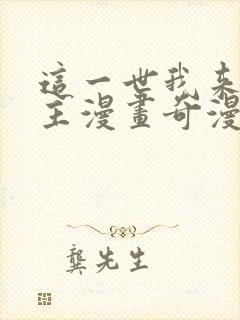 這一世我来
主漫畫奇漫
龔先生